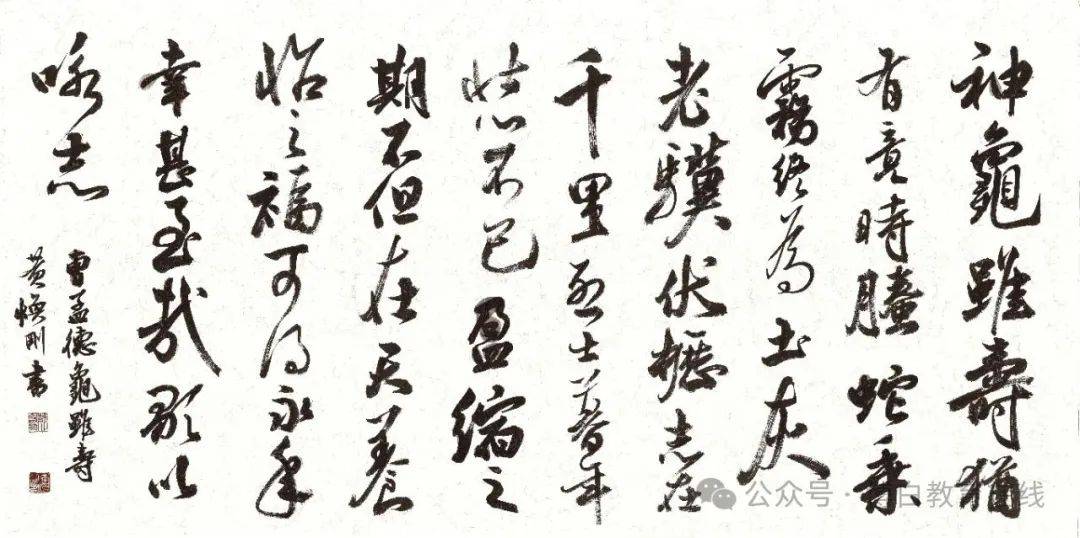 神龜雖壽猶
有竟時螣蛇乘
霧終為土灰
老驥伏櫪志在
千里烈士暮年
壯心不已盈縮之
期不但在天養
怡之福可得永年
幸甚至哉歌以
咏志
曹孟德龜雖壽
黄煥刚書
公众号 · 白教育在线